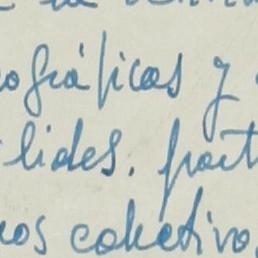 ográficas y
slides. part
nos coletivo